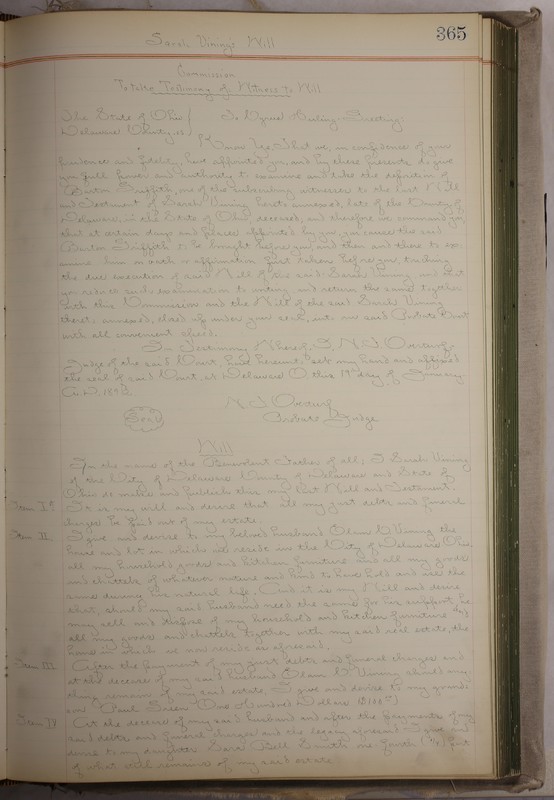 365
Sarah Vining's Will
Commission
To take Testimony of Witness to Will
The State of Ohio
Delaware County, ss
To Cyrus Huling, Greeting:
Know Ye, That we, in confidence of your
prudence and fidelity, have appointed you, and by these presents do give
you full power and authority to examine and take the deposition of
Burton Griffith, one of the subscribing witnesses to the last Will
and Testament of Sarah Vining hereto annexed, late of the County of
Delaware, in the State of Ohio deceased, and therefore we command you
that at certain days and places appointed by you, you cause the said
Burton Griffith to be brought before you, and then and there to ex-
amine him on oath or affirmation first taken before you, touching
the due execution of said Will of the said Sarah Vining and that
you reduce such examination to writing and return the same together
with this Commission and the Will of the said Sarah Vining
thereto annexed, closed up under your seal, unto our said Probate Court
with all convenient speed.
In Testimony Whereof, I, N. F. Overturf
Judge of the said Court, have hereunto set my hand and affixed
the seal of said Court, at Delaware O. this 19th day of January
A.D. 189
N. F. Overturf
Probate Judge
Seal
Will
In the name of the Benevolent Father of all; I Sarah Vining
of the City of Delaware County of Delaware and State of
Ohio do make and publish this my last Will and Testament.
Item I It is my will and desire that all my just debts and funeral
charges be paid out of my estate.
Item II I give and devise to my beloved husband Vining the
house and lot in which we reside in the City of Delaware Ohio,
all my household goods and kitchen furniture and all my goods
and chattels of whatever nature and kind to have hold and use the
same during his natural life. And it is my Will and desire
that, should my said husband need the same for his support, he
may sell and dispose of my household and kitchen furniture and
all my goods and chattels together with my said real estate, the
home in which we now reside as aforesaid.
Item III After the payment of my just debts and funeral charges and
at the decease of my said husband Vining should any
thing remain of my said estate, I give and devise to my grand-
son Paul One Hundred Dollars ($100.00)
Item IV At the decease of my said husband and after the payments of my
said debts and funeral charges and the legacy aforesaid I give and
devise to my daughter Sara Bell Smith one fourth (1/4) part
of what still remains of my said estate